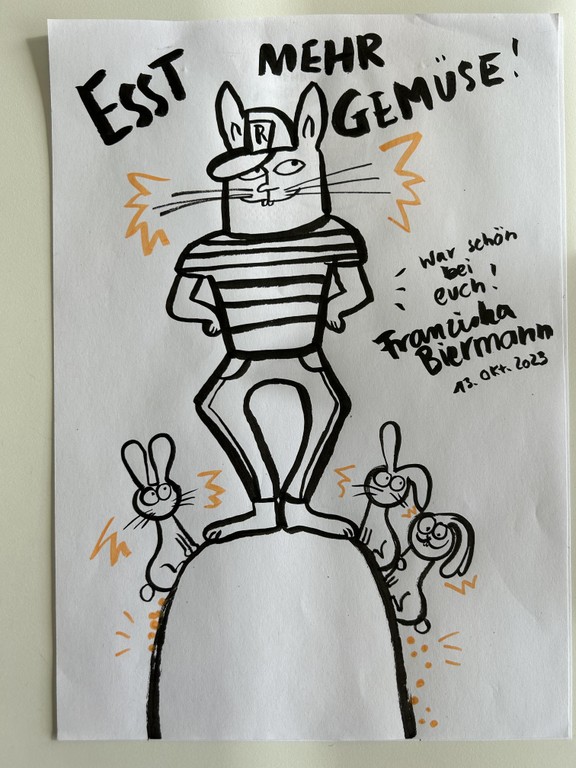 ESST MEHR
GEMÜSE!
R
War schön
bei
euch!
Franziska
Biermann
13. Okt. 2023